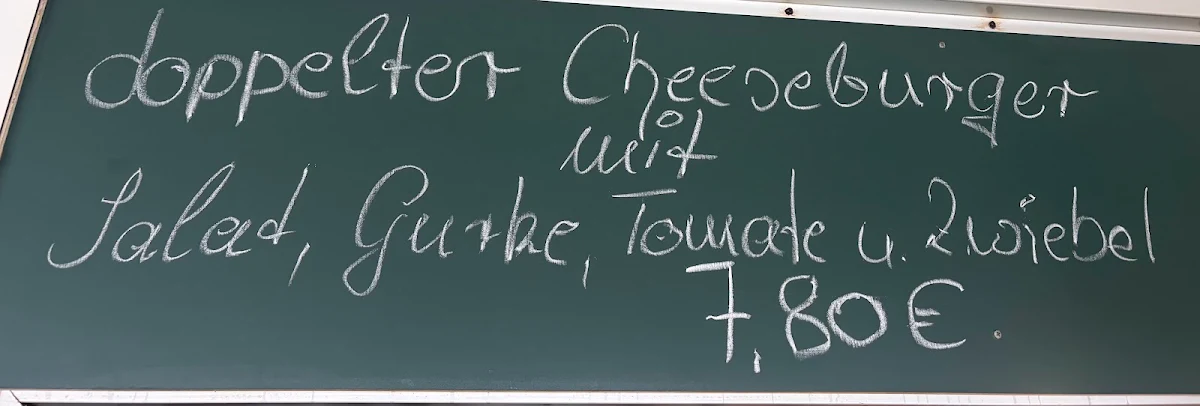 doppelter Cheeseburger
mit
Salat, Gurke, Tomate u. Zwiebel
7,80€